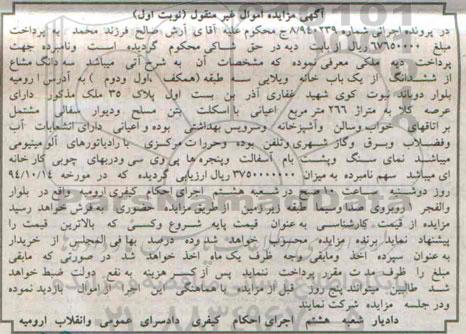 آگهی مزایده اموال غیر منقول (نوبت اول)
در پرونده اجرائی شماره ۸/۹۴۰۲۳۹ ج محکوم علیه آقای آرش صالح فرزند محمد به پرداخت
مبلغ ۶۷۶۵۰۰۰۰ ریال از بابت دیه در حق شاکی محکوم گردیده است ونامبرده جهت
پرداخت دیه ملکی معرفی نموده که مشخصات آن به شرح آتی میباشد سه دانگ مشاع
از ششدانگ از یک باب خانه ویلایی سه طبقه (همکف ،اول ودوم ) به آدرس ارومیه
بلوار دوباند نبوت کوی شهید غفاری آذر بن بست اول پلاک ۳۵ ملک مذکور دارای
عرصه کلا به متراژ ۲۶۶ متر مربع اعیانی با اسکلت بتن مسلح ودیوار سفالی مشتمل
بر اتاقهای خواب وسالن وآشپزخانه وسرویس بهداشتی بوده و اعیانی دارای انشعابات آب
وفاضلاب وبرق وگاز شهری وتلفن بوده وحرارت مرکزی با رادیاتورهای آلومینیومی
میباشد نمای سنگ وپشت بام آسفالت وپنجره ها پی وی سی ودربهای چوبی کارخانه
ای میباشد سهم نامبرده به میزان ۳۷۵۰۰۰۰۰۰۰ ریال ارزیابی گردیده که در مورخه ۹۴/۱۰/۱۴
روز دوشنبه ساعت ۱۰ صبح در شعبه هشتم اجرای احکام کیفری ارومیه واقع در بلوار
والفجر ۲ روبروی صدا وسیما طبقه زیرزمین از طریق مزایده حضوری به فروش خواهد رسید
مزایده از قیمت کارشناسی به عنوان قیمت پایه شروع وکسی که بالاترین قیمت را
پیشنهاد نماید برنده مزایده محسوب خواهد شد وده درصد بها فی المجلس از خریدار
به عنوان سپرده اخذ ومابقی وجه ظرف یک ماه اخذ خواهد شد در صورتی که مابقی
مبلغ را ظرف مدت مقرر پرداخت ننماید پس از کسر هزینه به نفع دولت ضبط خواهد
شد طالبین میتوانند پنج روز قبل از مزایده با هماهنگی این اجرا از اموال بازدید نموده
ودر جلسه مزایده شرکت نمایند
دادیار شعبه هشتم اجرای احکام کیفری دادسرای عمومی وانقلاب ارومیه